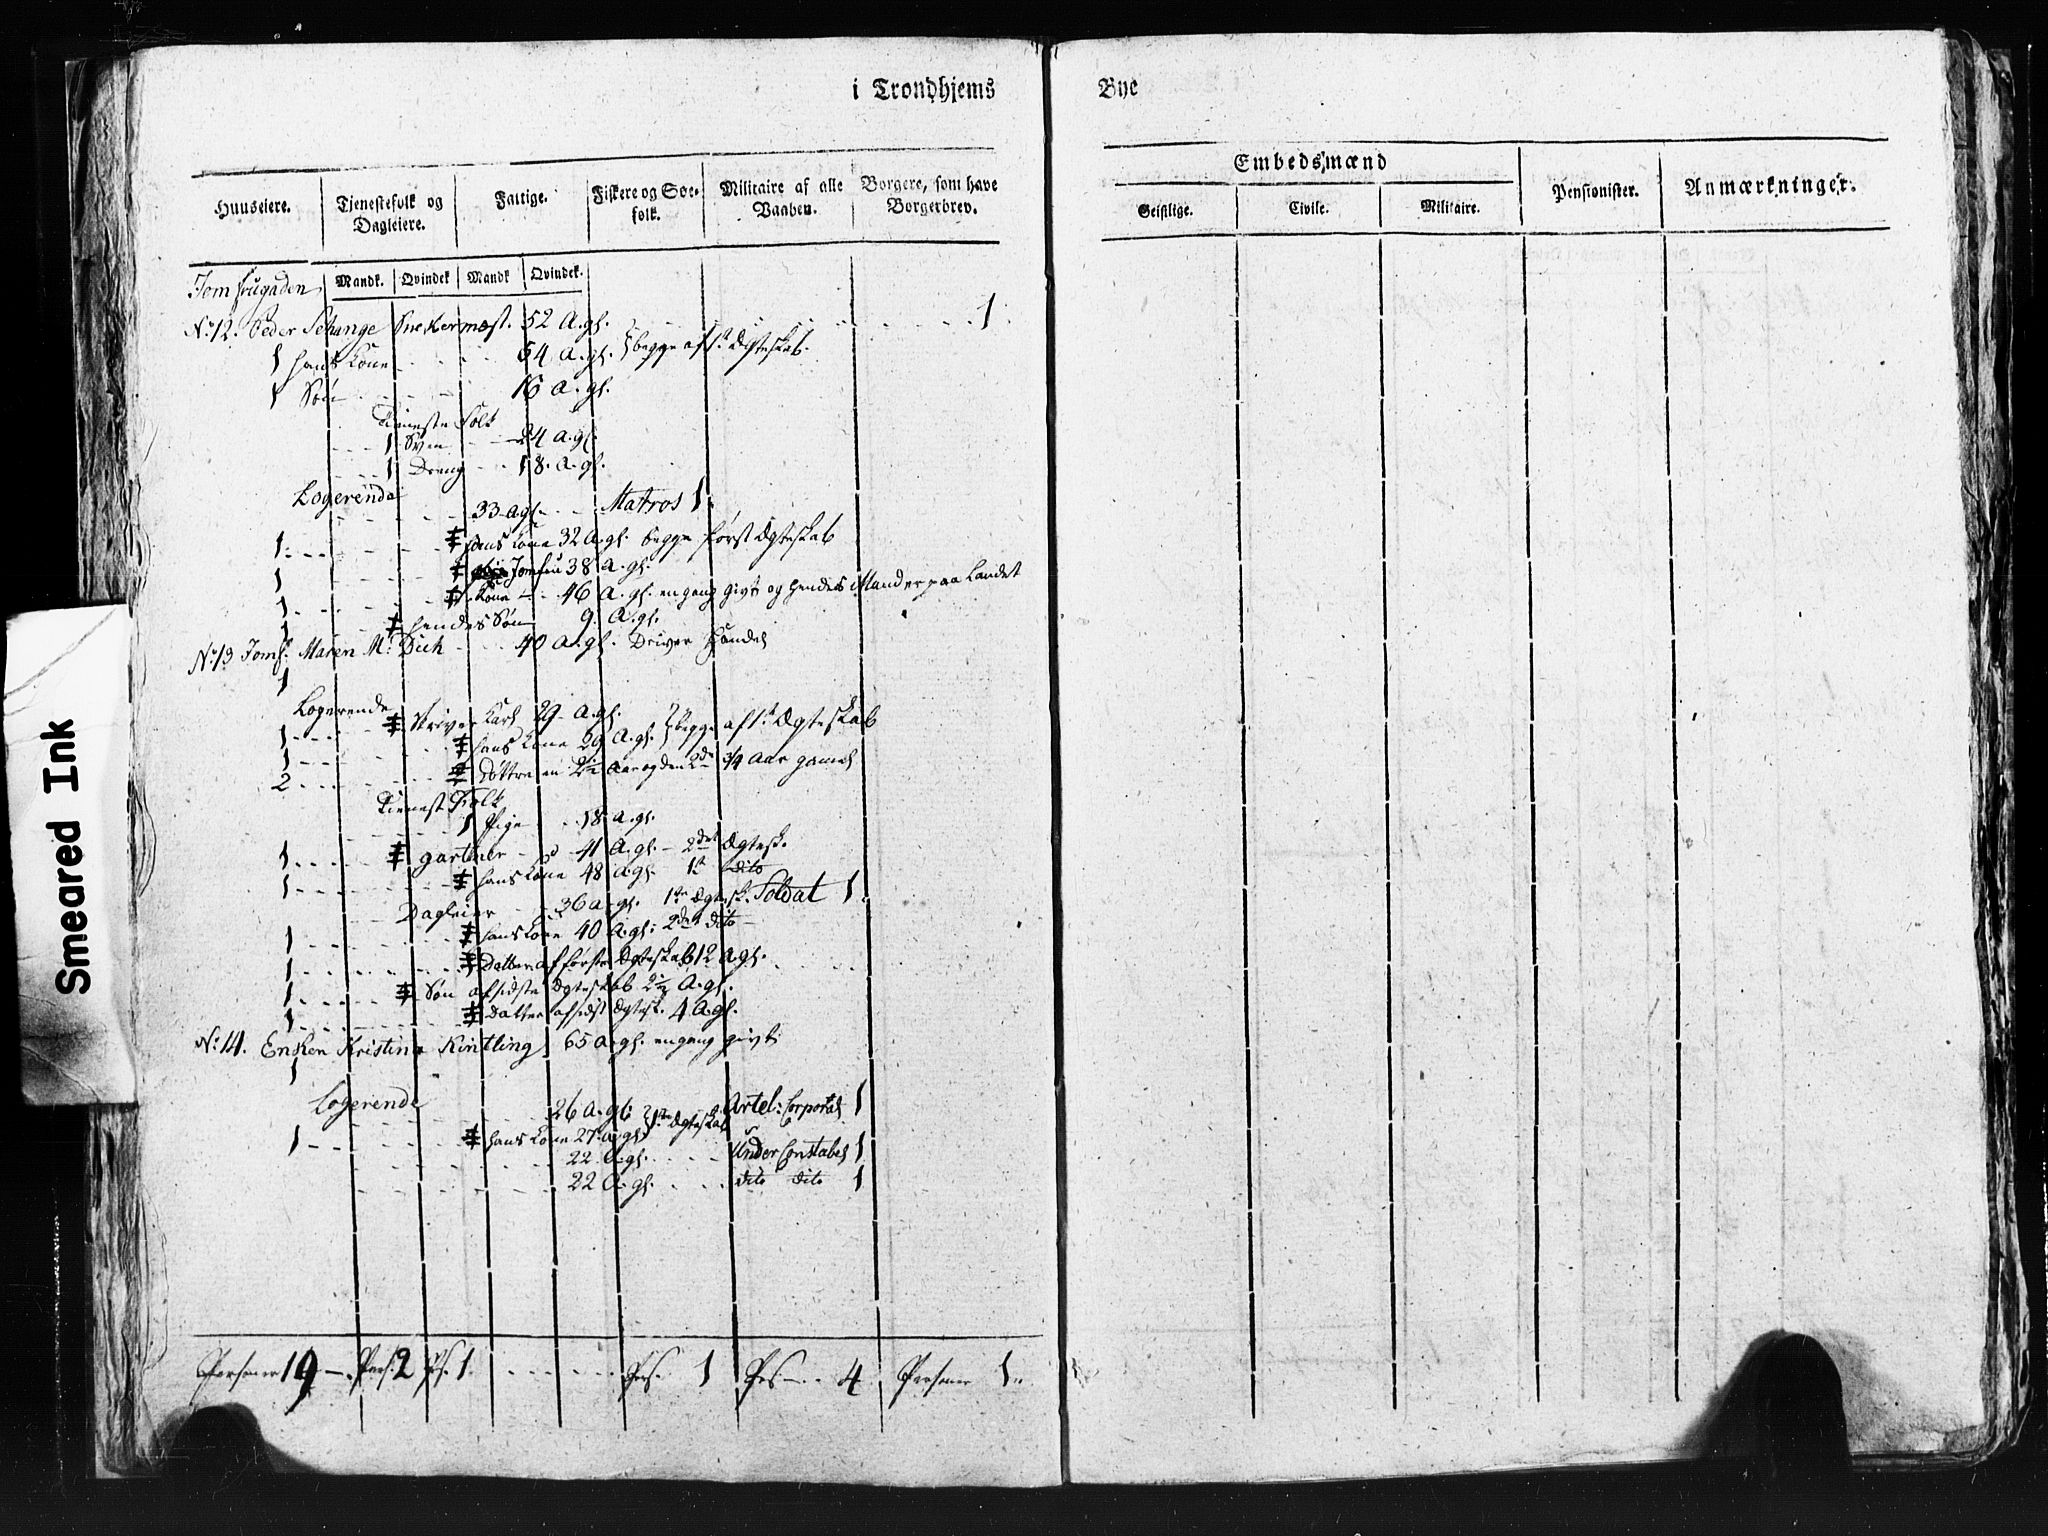 i Trondhjems Bye
Huuseiere. Tjenestefolk og Dagleiere. Fattige. Fiskere og Søefolk. Militaire af alle Vaaben. Borgere, som have Borgerbrev.
Embedsmænd Pensionister. Anmærkninger.
Geistlige. Civile. Militaire.
Mandk. Qvindek Mandk Qvindek.
Jomfrugaden
No 12. Peder Schange Snekermæst. 52 A. gl. 1
1 hans Kone 54 A. gl. begge af 1te Ægteskab.
1 Søn 16 A. gl.
Tieneste Folk
1 Sven 24 A. gl.
1 Dreng 18. A. gl.
Logerende
33 A gl. Matros 1
1 hans Kone 32 A. gl. begge først Ægteskab
1 Jomfru 38 A. gl.
1 Kone 46 A. gl. en gang givt og hendes Mand er paa Landet
1 hendes Søn 9. A. gl.
No 13 Jomf. Maren M. Dich 40 A. gl. Driver Handel
1
Logerende
1 Skriver Karl 29 A. gl. begge af 1te Ægteskab
1 hans Kone 29 A. gl.
2 Døttre en 2½ Aar og den 2de ¾ Aar gamel
Tienest Folk
1 Pige 18 A. gl.
1 gartner 41 A. gl. 2det Ægtesk.
1 hans Kone 48 A. gl. 1te dito
Dagleier 36 A. gl. 1te Ægtesk. Soldat 1
1 hans Kone 40 A. gl. 2det dito
1 Datter af første Ægteskab 12 A. gl.
1 Søn af sidste Ægteskab 2½ A. gl.
1 Datter af sidst Ægtesk. 4 A. gl.
No 14. Enken Kristina Kintling 65 A. gl. en gang givt
1
Logerende
26 A. gl. 1te Ægteskab Artel: Corporal 1
1 hans Kone 27 A. gl.
22 A. gl. Under Constabel 1
22 A. gl. dito dito 1
Personer 19 Pers. 2 Ps. 1 Prs. 1 Prs 4 Personer 1
Smeared Ink